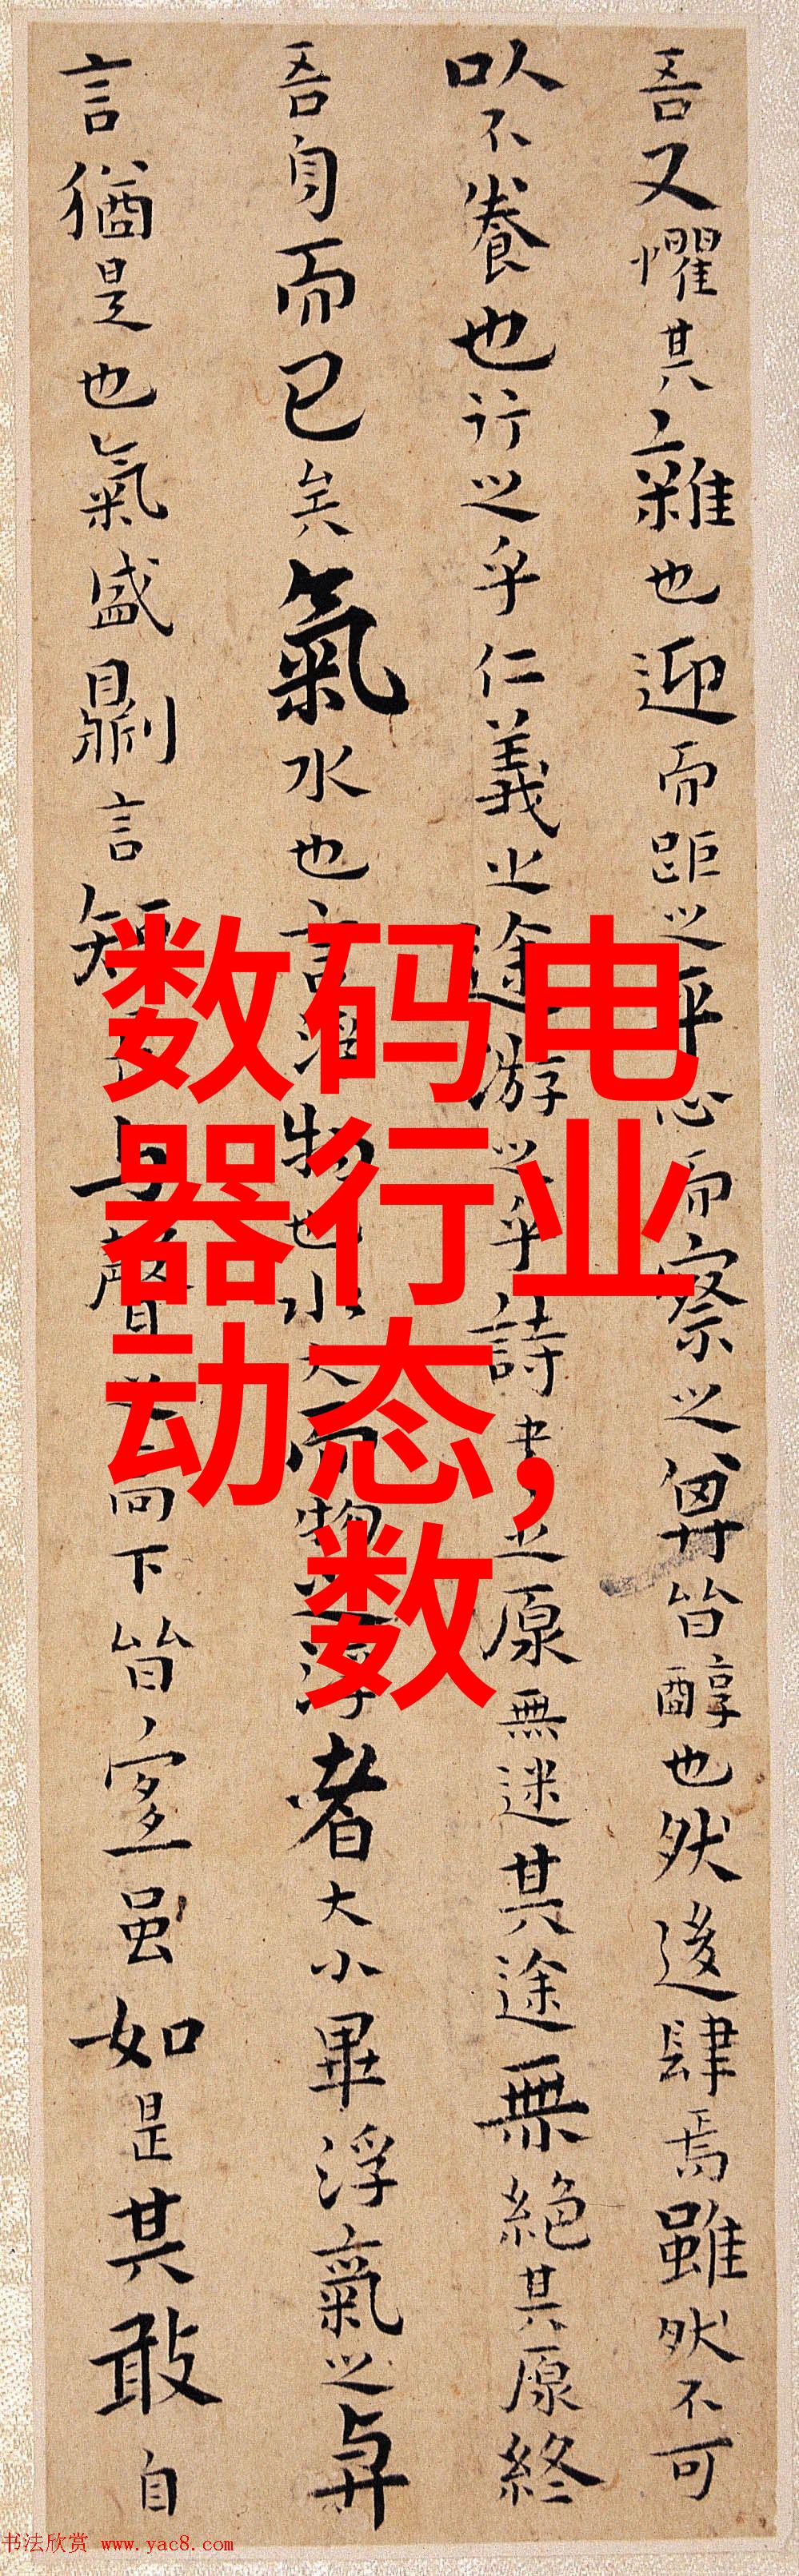 吾又懼其雜也迎而距之平心而察之其皆醇也然後肆焉雖然不可
以不養也行之乎仁義之途游之乎詩書之原無迷其途無絕其原終
吾身而已矣氣水也言浮物也水大而物之浮者大小畢浮氣之與
言猶是也氣盛則言短長與聲之高下皆宜虽如是其敢自
数码电
器行业
动态,
数
书法欣赏 www.yac8.com